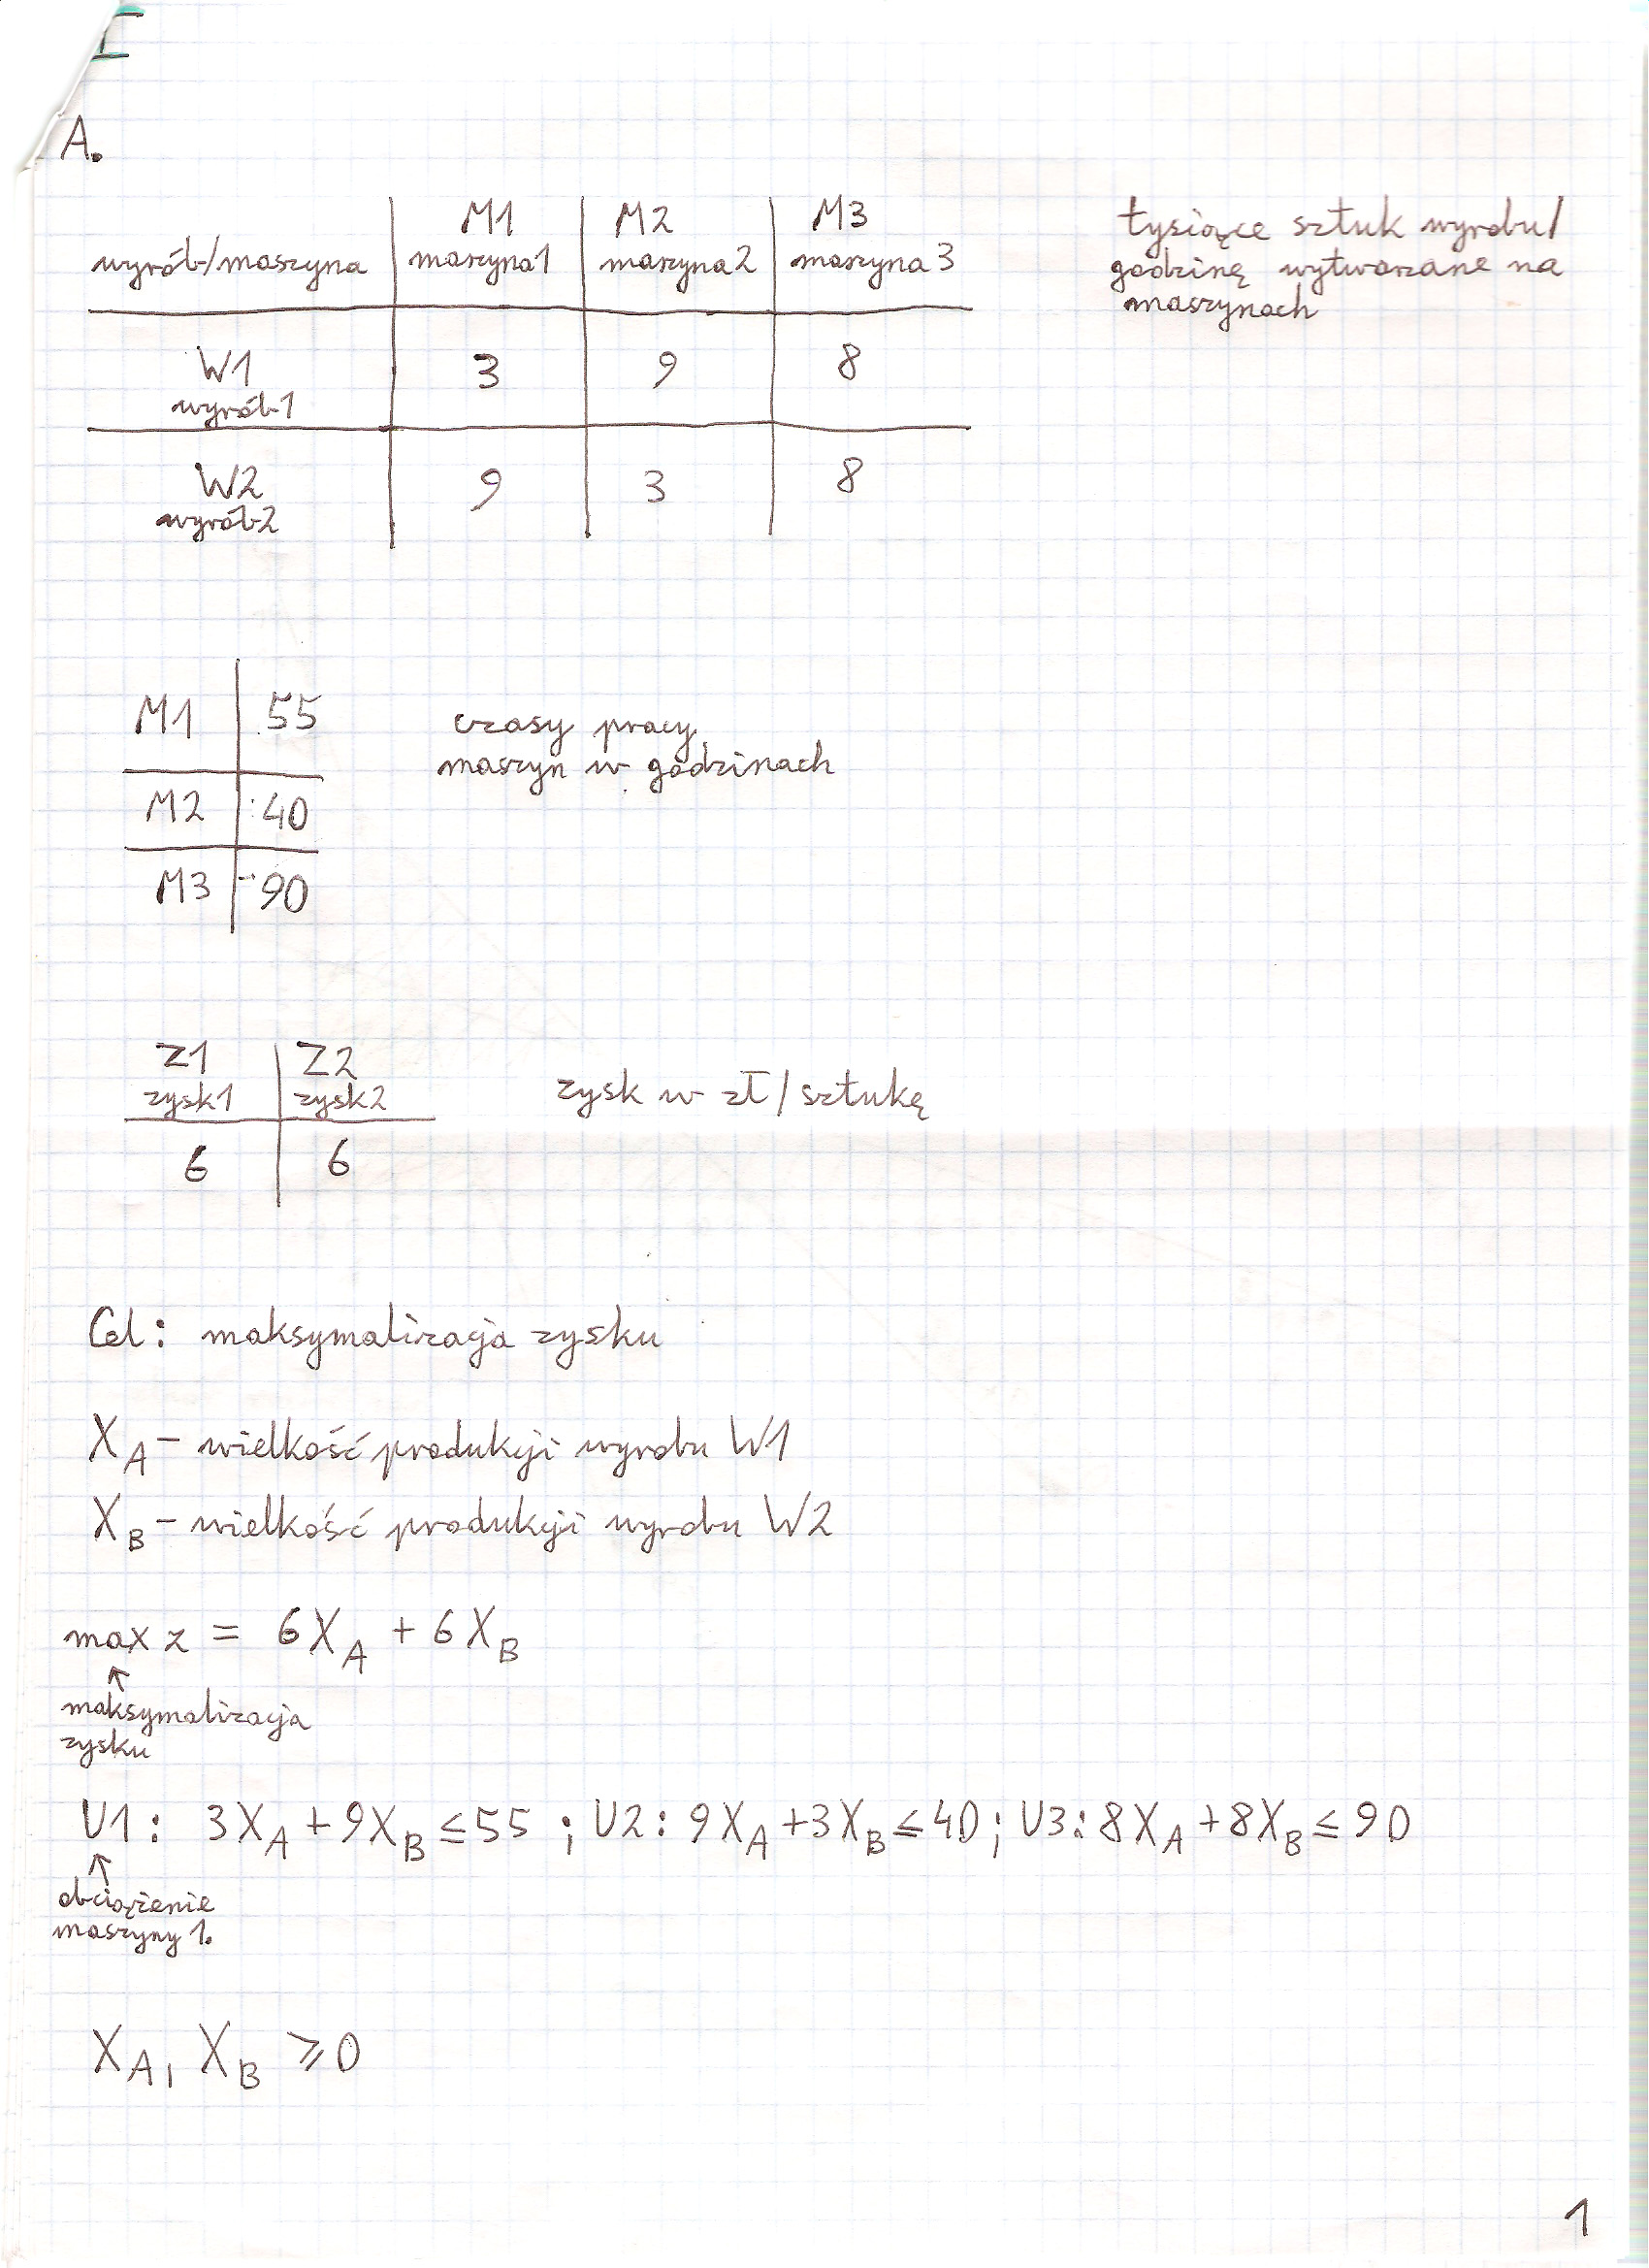 I
A.
wyrób/maszyna M1 maszyna1 M2 maszyna2 M3 maszyna 3
tysiące sztuk wyrobu/
godzinę wytwarzane na
maszynach
W1 3 9 8
wyrób1
W2 9 3 8
wyrób2
M1 55
czasy pracy
maszyn w godzinach
M2 40
M3 90
Z1 Z2
zysk1 zysk2
zysk w zł/sztukę
6 6
Cel: maksymalizacja zysku
X_A – wielkość produkcji wyrobu W1
X_B – wielkość produkcji wyrobu W2
max z = 6X_A + 6X_B
↑
maksymalizacja
zysku
U1: 3X_A + 9X_B ≤ 55 ; U2: 9X_A + 3X_B ≤ 40; U3: 8X_A + 8X_B ≤ 90
↑
obciążenie
maszyny 1.
X_A, X_B ≥ 0
1